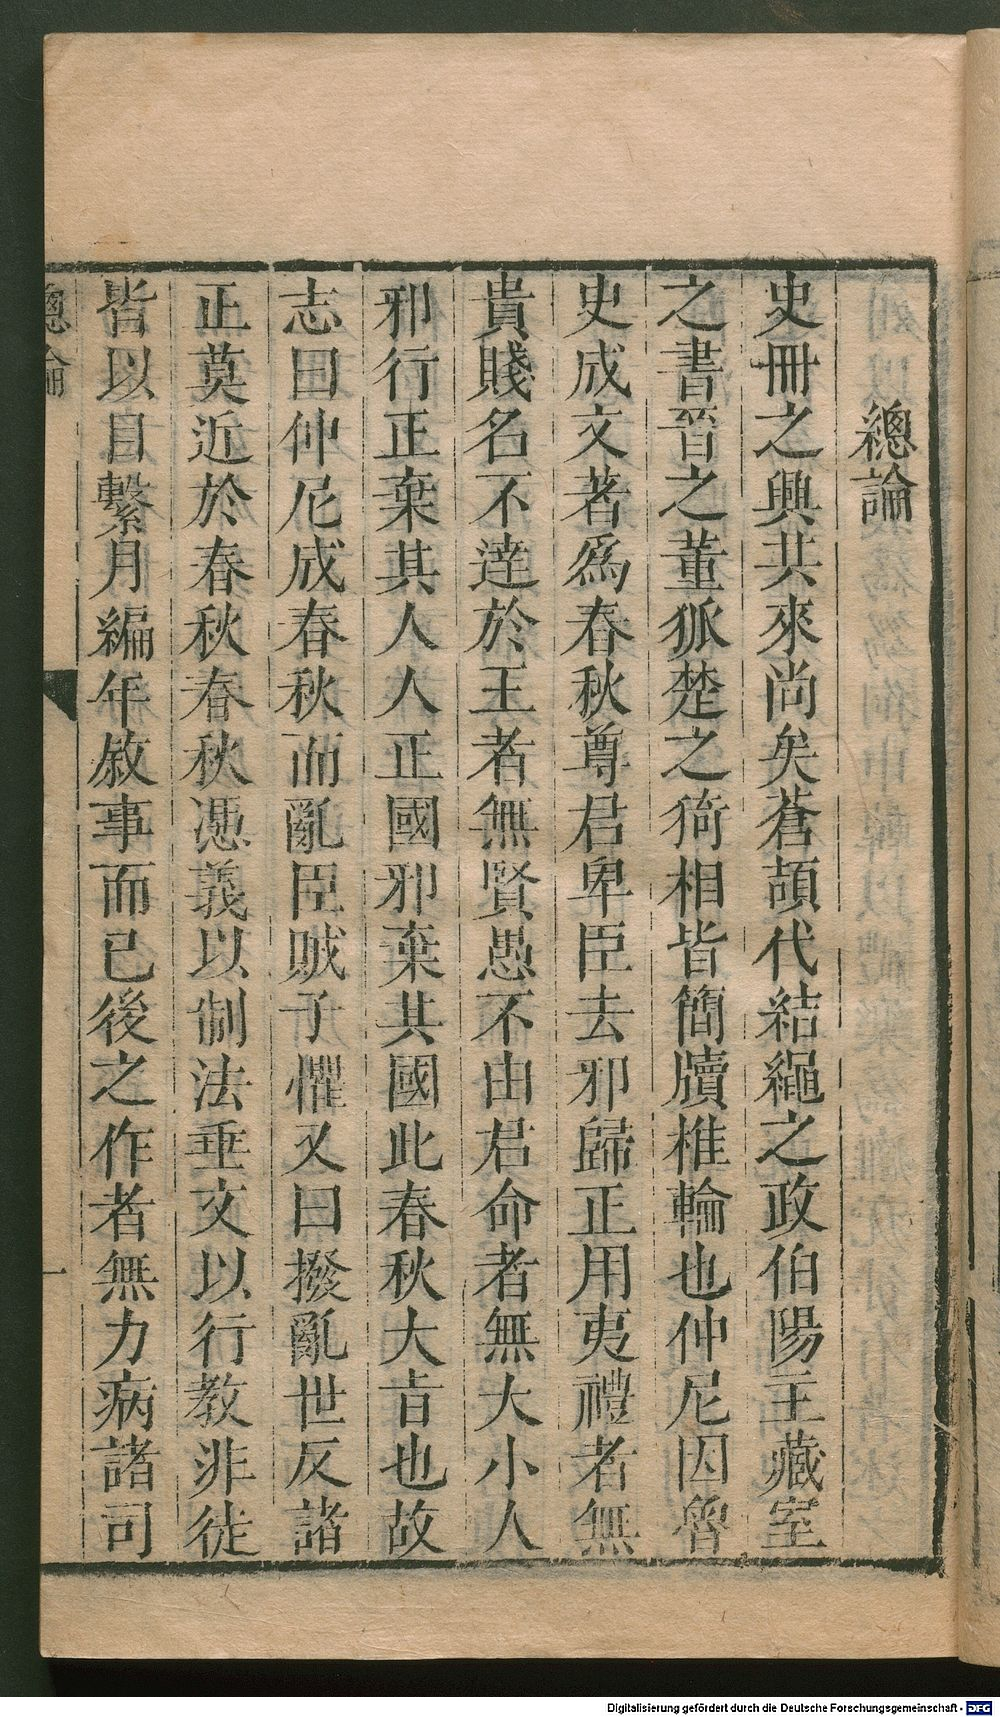 總論
史冊之興其來尚矣蒼頡代結繩之政伯陽王藏室
之書晉之董狐楚之猗相皆簡牘椎輪也仲尼因魯
史成文著爲春秋尊君卑臣去邪歸正用夷禮者無
貴賤名不達於王者無賢愚不由君命者無大小人
邪行正棄其人人正國邪棄其國此春秋大㫖也故
志曰仲尼成春秋而亂臣賊子懼又曰撥亂世反諸
正莫近於春秋春秋憑義以制法垂文以行教非徒
皆以日繫月編年敘事而已後之作者無力病諸司
總論
一
Digitalisierung gefördert durch die Deutsche Forschungsgemeinschaft - DFG